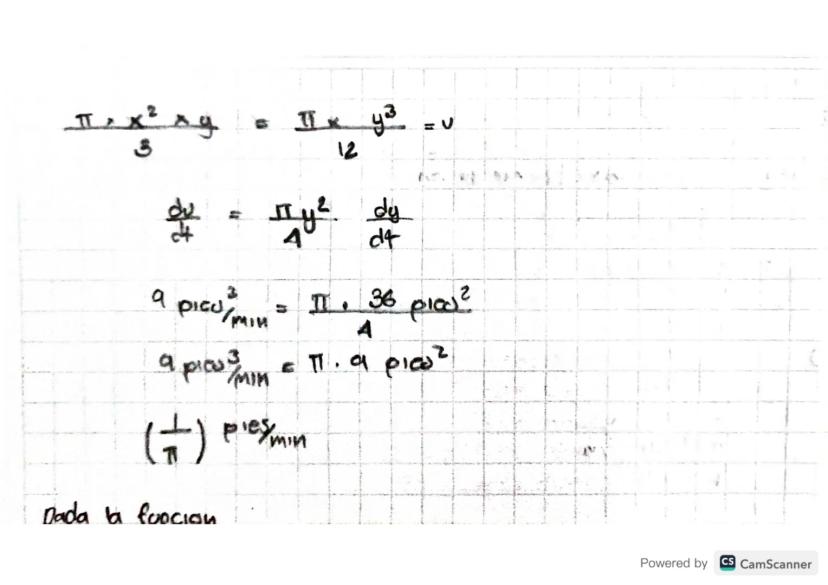 π × x² × y / 3 = π × y³ / 12 = v
dv/dt = πy²/4 dy/dt
9 pies³/min = π · 36 pies² / 4
9 pies³/min = π · 9 pies²
(1/π) pies/min
Dada la funcion
Powered by CS CamScanner